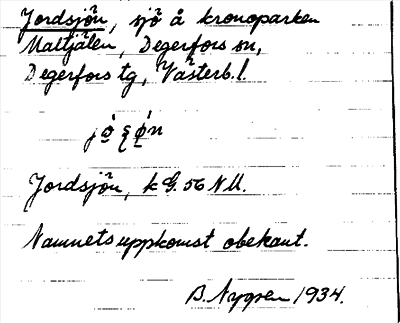 Jordsjön, sjö å kronoparken
Maltjälen, Degerfors sn,
Degerfors tg, Västerb. l.
Jordsjön, k G. 56 NU.
Namnets uppkomst obekant.
B. Nygren 1934.